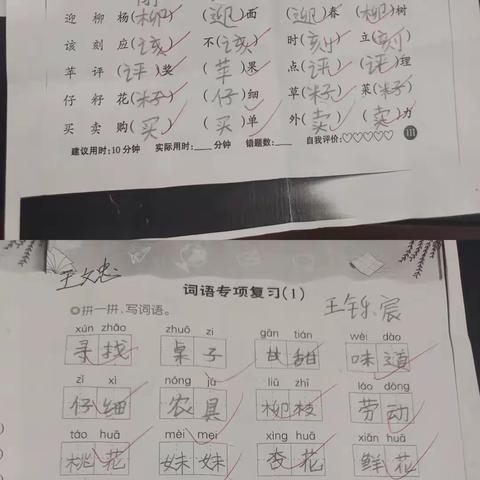 迎 柳 杨(柳) (迎)面 (迎)春 (柳)树
该 刻 应(该) 不(该) 时(刻) 立(刻)
苹 评 (评)奖 (苹)果 点(评) (评)理
仔 籽 花(籽) (仔)细 草(籽) 菜(籽)
买 卖 购(买) (买)单 外(卖) (卖)力
建议用时:10分钟 实际用时:____分钟 错题数:____ 自我评价:♡♡♡♡♡ 111
王文忠
词语专项复习(1)
王铄宸
◎拼一拼,写词语。
xún zhǎo zhuō zi gān tián wèi dào
寻找 桌子 甘甜 味道
zǐ xì nóng jù liǔ zhī láo dòng
仔细 农具 柳枝 劳动
táo huā mèi mei xìng huā xiān huā
桃花 妹妹 杏花 鲜花